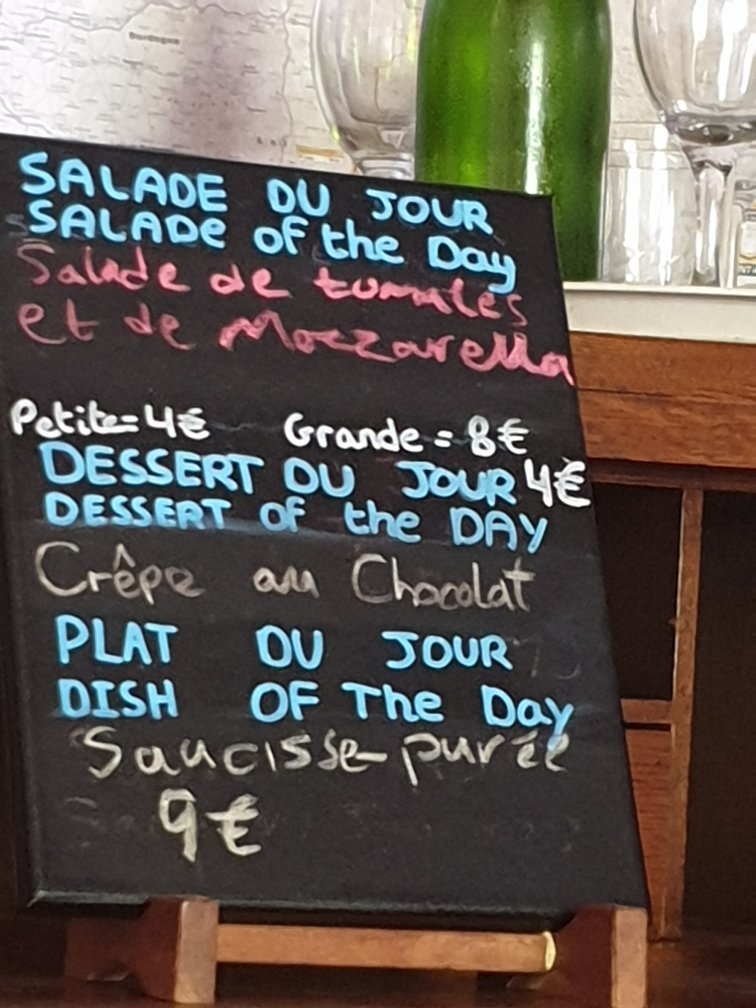 SALADE DU JOUR
SALADe of the Day
Salade de tomates
et de Mozzarella
Petite=4€ Grande = 8€
DESSERT DU JOUR 4€
DESSERT of the DAY
Crêpe au Chocolat
PLAT DU JOUR
DISH OF The Day
Saucisse-purée
9€